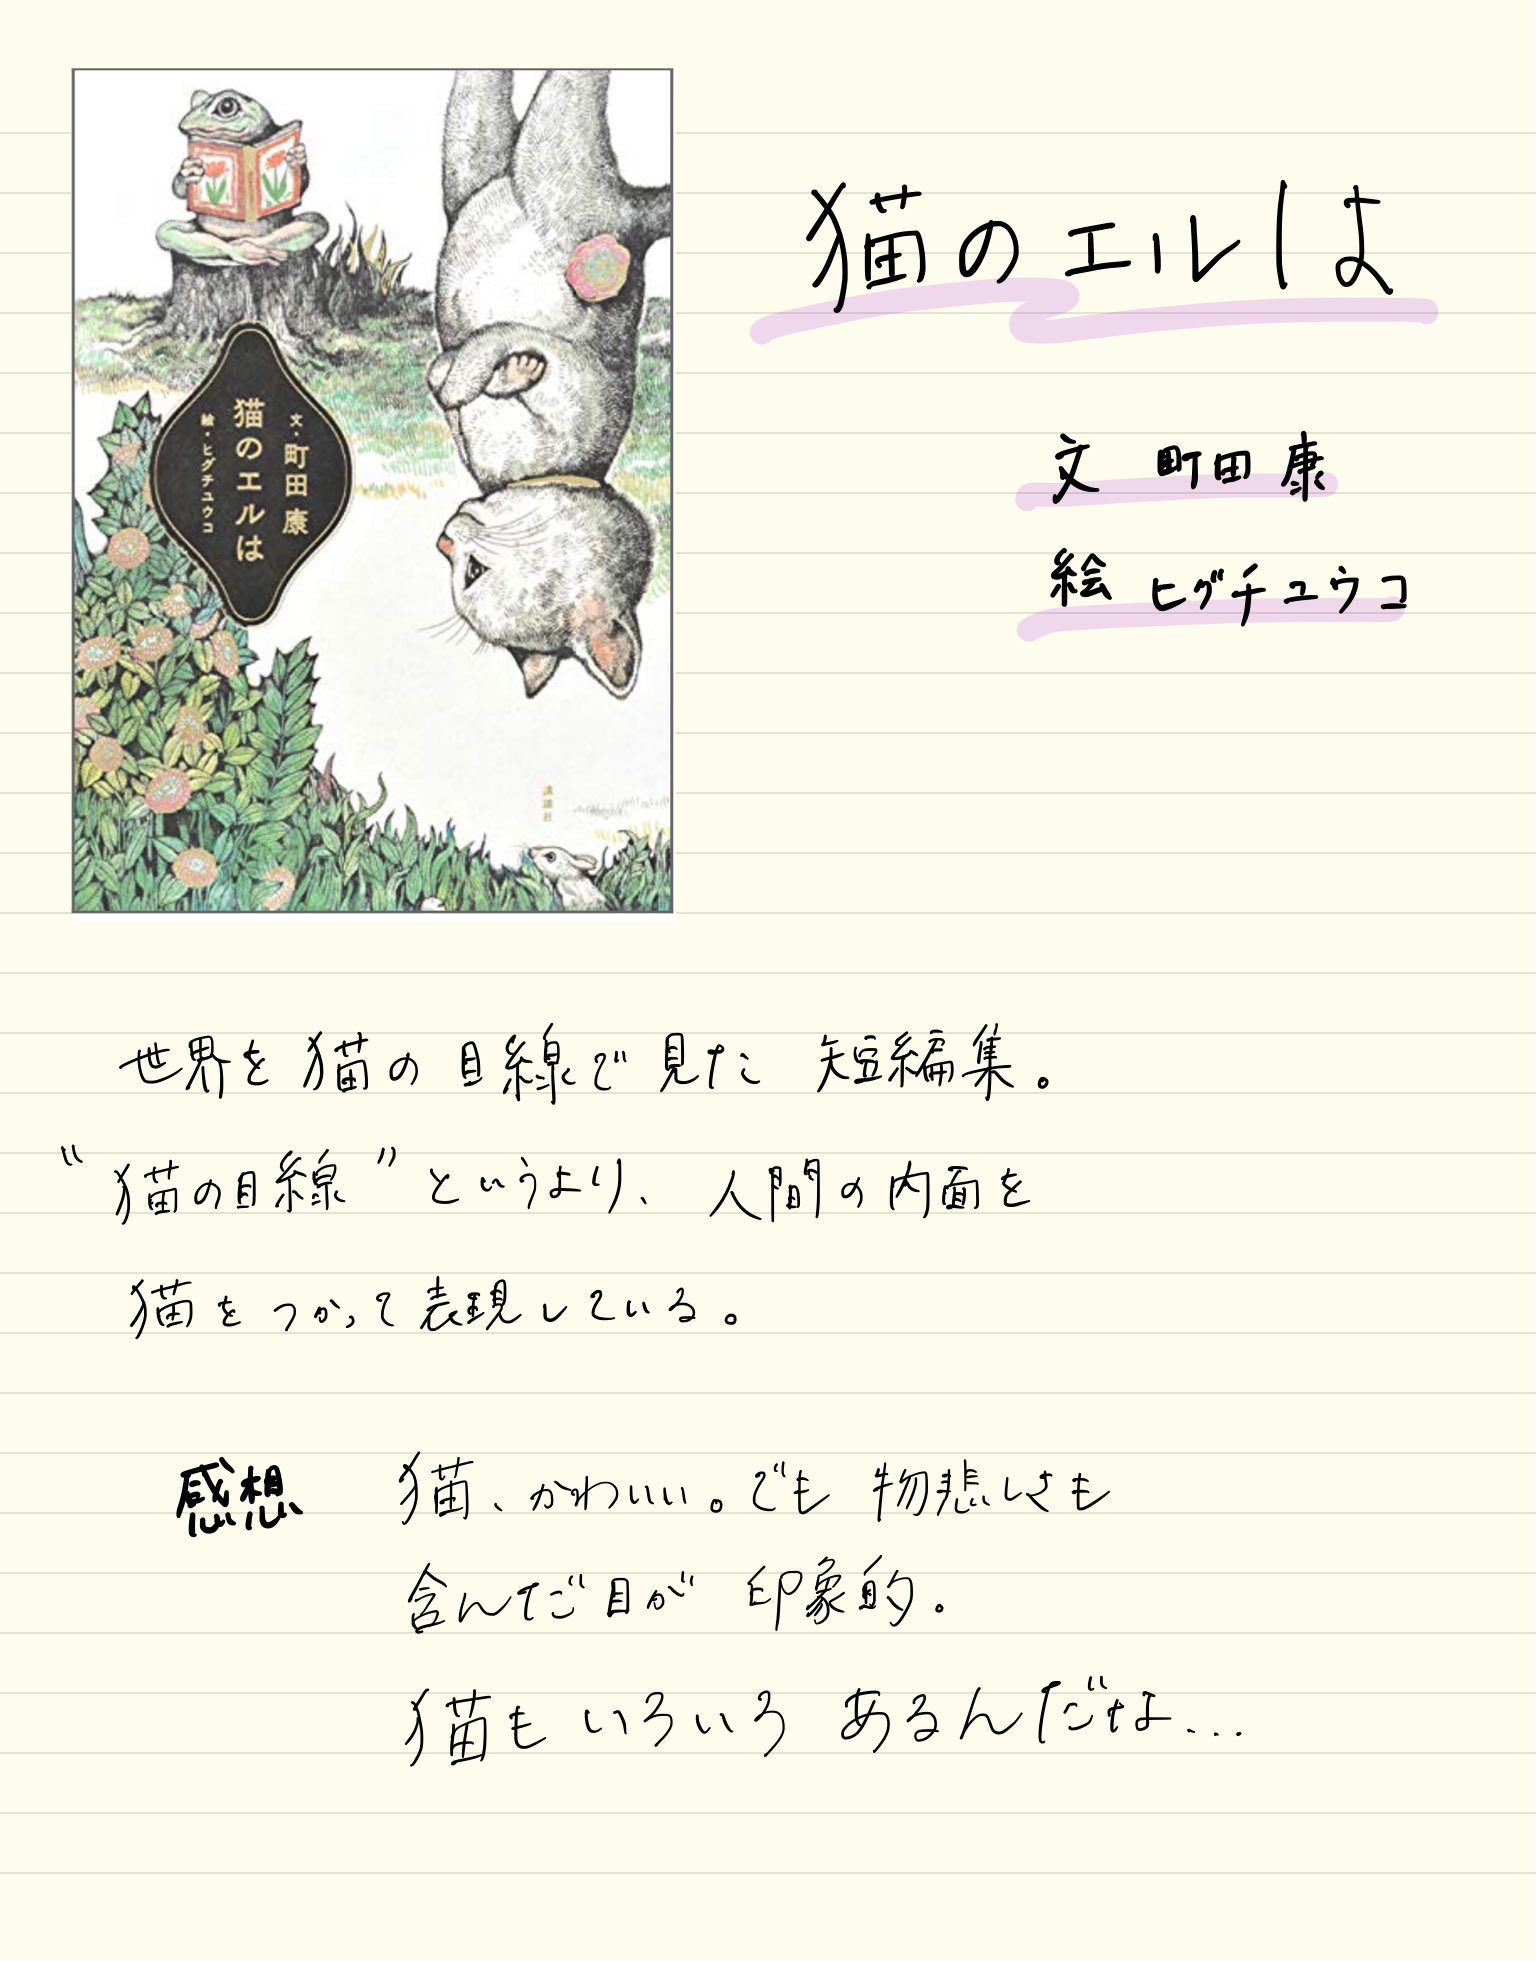 文・町田 康
猫のエルは
絵・ヒグチユウコ
講談社
猫のエルは
文 町田 康
絵 ヒグチユウコ
世界を猫の目線で見た 短編集。
“猫の目線”というより、人間の内面を
猫をつかって表現している。
感想 猫、かわいい。でも 物悲しさも
含んだ目が 印象的。
猫もいろいろ あるんだな...